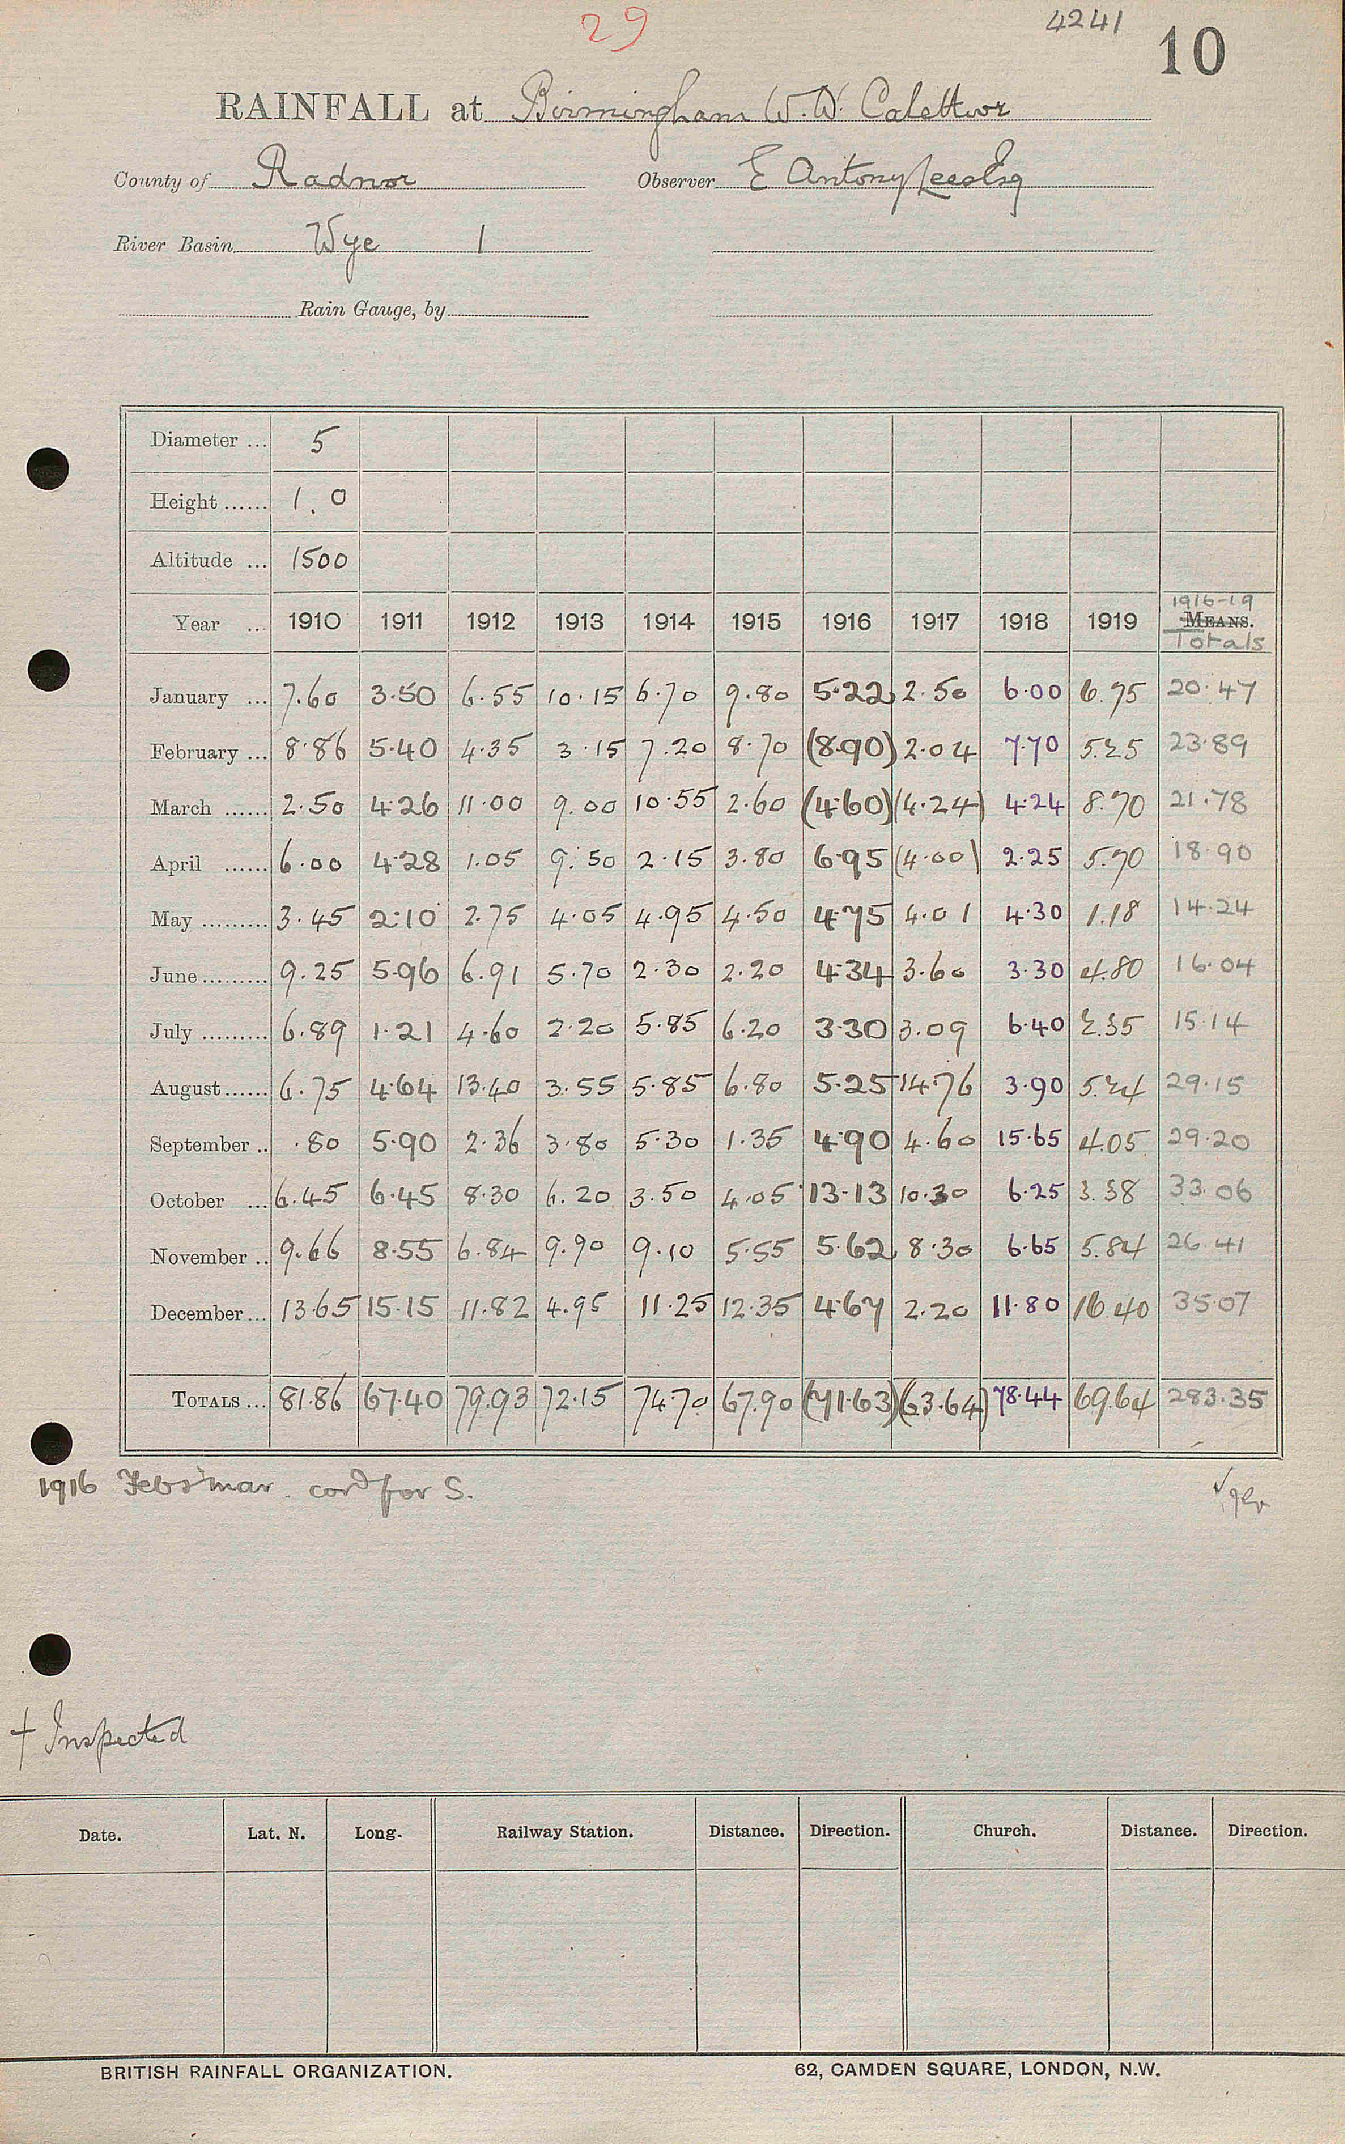 29
4241
10
RAINFALL at Birmingham W.W. Calettwr
County of Radnor Observer E Antony Lees Esq
River Basin Wye 1
Rain Gauge, by
Diameter ... 5
Height ...... 1.0
Altitude ... 1500
1916-19
Year ... 1910 1911 1912 1913 1914 1915 1916 1917 1918 1919 MEANS.
Totals
January ... 7.60 3.50 6.55 10.15 6.70 9.80 5.22 2.50 6.00 6.75 20.47
February ... 8.86 5.40 4.35 3.15 7.20 8.70 (8.90) 2.04 7.70 5.25 23.89
March ...... 2.50 4.26 11.00 9.00 10.55 2.60 (4.60) (4.24) 4.24 8.70 21.78
April ...... 6.00 4.28 1.05 9.50 2.15 3.80 6.95 (4.00) 2.25 5.70 18.90
May ......... 3.45 2.10 2.75 4.05 4.95 4.50 4.75 4.01 4.30 1.18 14.24
June ......... 9.25 5.96 6.91 5.70 2.30 2.20 4.34 3.60 3.30 4.80 16.04
July ......... 6.89 1.21 4.60 2.20 5.85 6.20 3.30 3.09 6.40 2.35 15.14
August ...... 6.75 4.64 13.40 3.55 5.85 6.80 5.25 14.76 3.90 5.24 29.15
September .. .80 5.90 2.36 3.80 5.30 1.35 4.90 4.60 15.65 4.05 29.20
October ... 6.45 6.45 8.30 6.20 3.50 4.05 13.13 10.30 6.25 3.38 33.06
November .. 9.66 8.55 6.84 9.90 9.10 5.55 5.62 8.30 6.65 5.84 26.41
December ... 13.65 15.15 11.82 4.95 11.25 12.35 4.67 2.20 11.80 16.40 35.07
TOTALS ... 81.86 67.40 79.93 72.15 74.70 67.90 (71.63) (63.64) 78.44 69.64 283.35
1916 Feb & Mar. cord for S.
† Inspected
Date. Lat. N. Long. Railway Station. Distance. Direction. Church. Distance. Direction.
BRITISH RAINFALL ORGANIZATION. 62, CAMDEN SQUARE, LONDON, N.W.